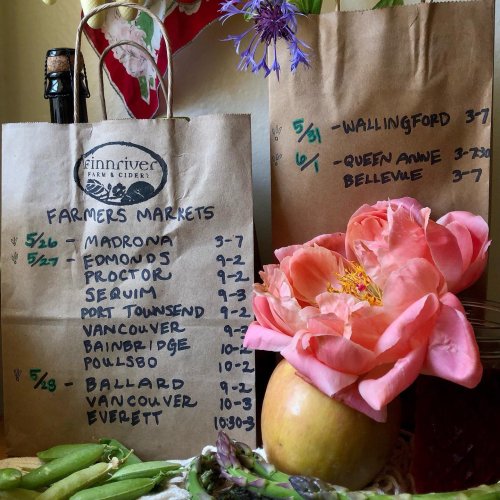 Finnriver
FARM & CIDERY
FARMERS MARKETS
5/26 - MADRONA 3-7
5/27 - EDMONDS 9-2
PROCTOR 9-2
SEQUIM 9-3
PORT TOWNSEND 9-2
VANCOUVER 9-
BAINBRIDGE 10-2
POULSBO 10-2
5/28 - BALLARD 9-2
VANCOUVER 10-3
EVERETT 10:30-3
5/31 - WALLINGFORD 3-7
6/1 - QUEEN ANNE 3-7:30
BELLEVUE 3-7